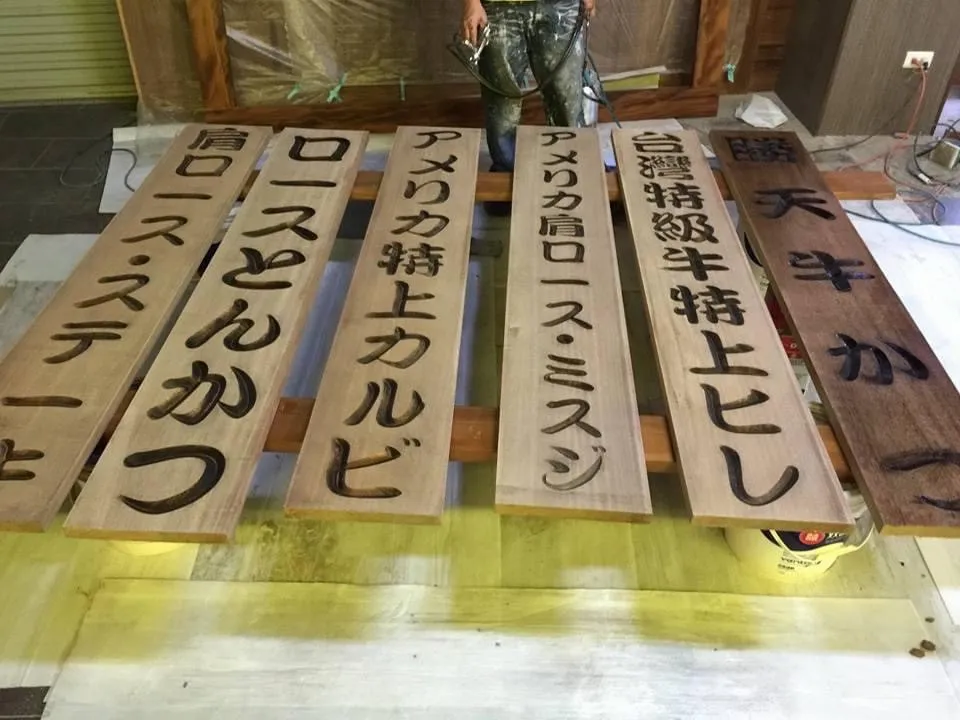 勝天牛かつ
台灣特級牛特上ヒレ
アメリカ肩ロース・ミスジ
アメリカ特上カルビ
ロースとんかつ
肩ロース・ステーキ